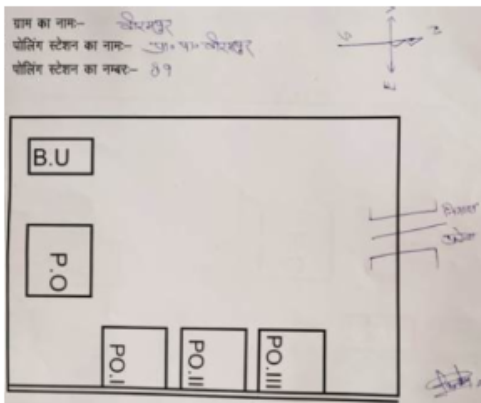 ग्राम का नामः- वीरमपुर
पोलिंग स्टेशन का नामः- प्रा० पा० वीरमपुर
पोलिंग स्टेशन का नम्बरः- 89
B.U
P.O
PO.I
PO.II
PO.III
निकास
प्रवेश